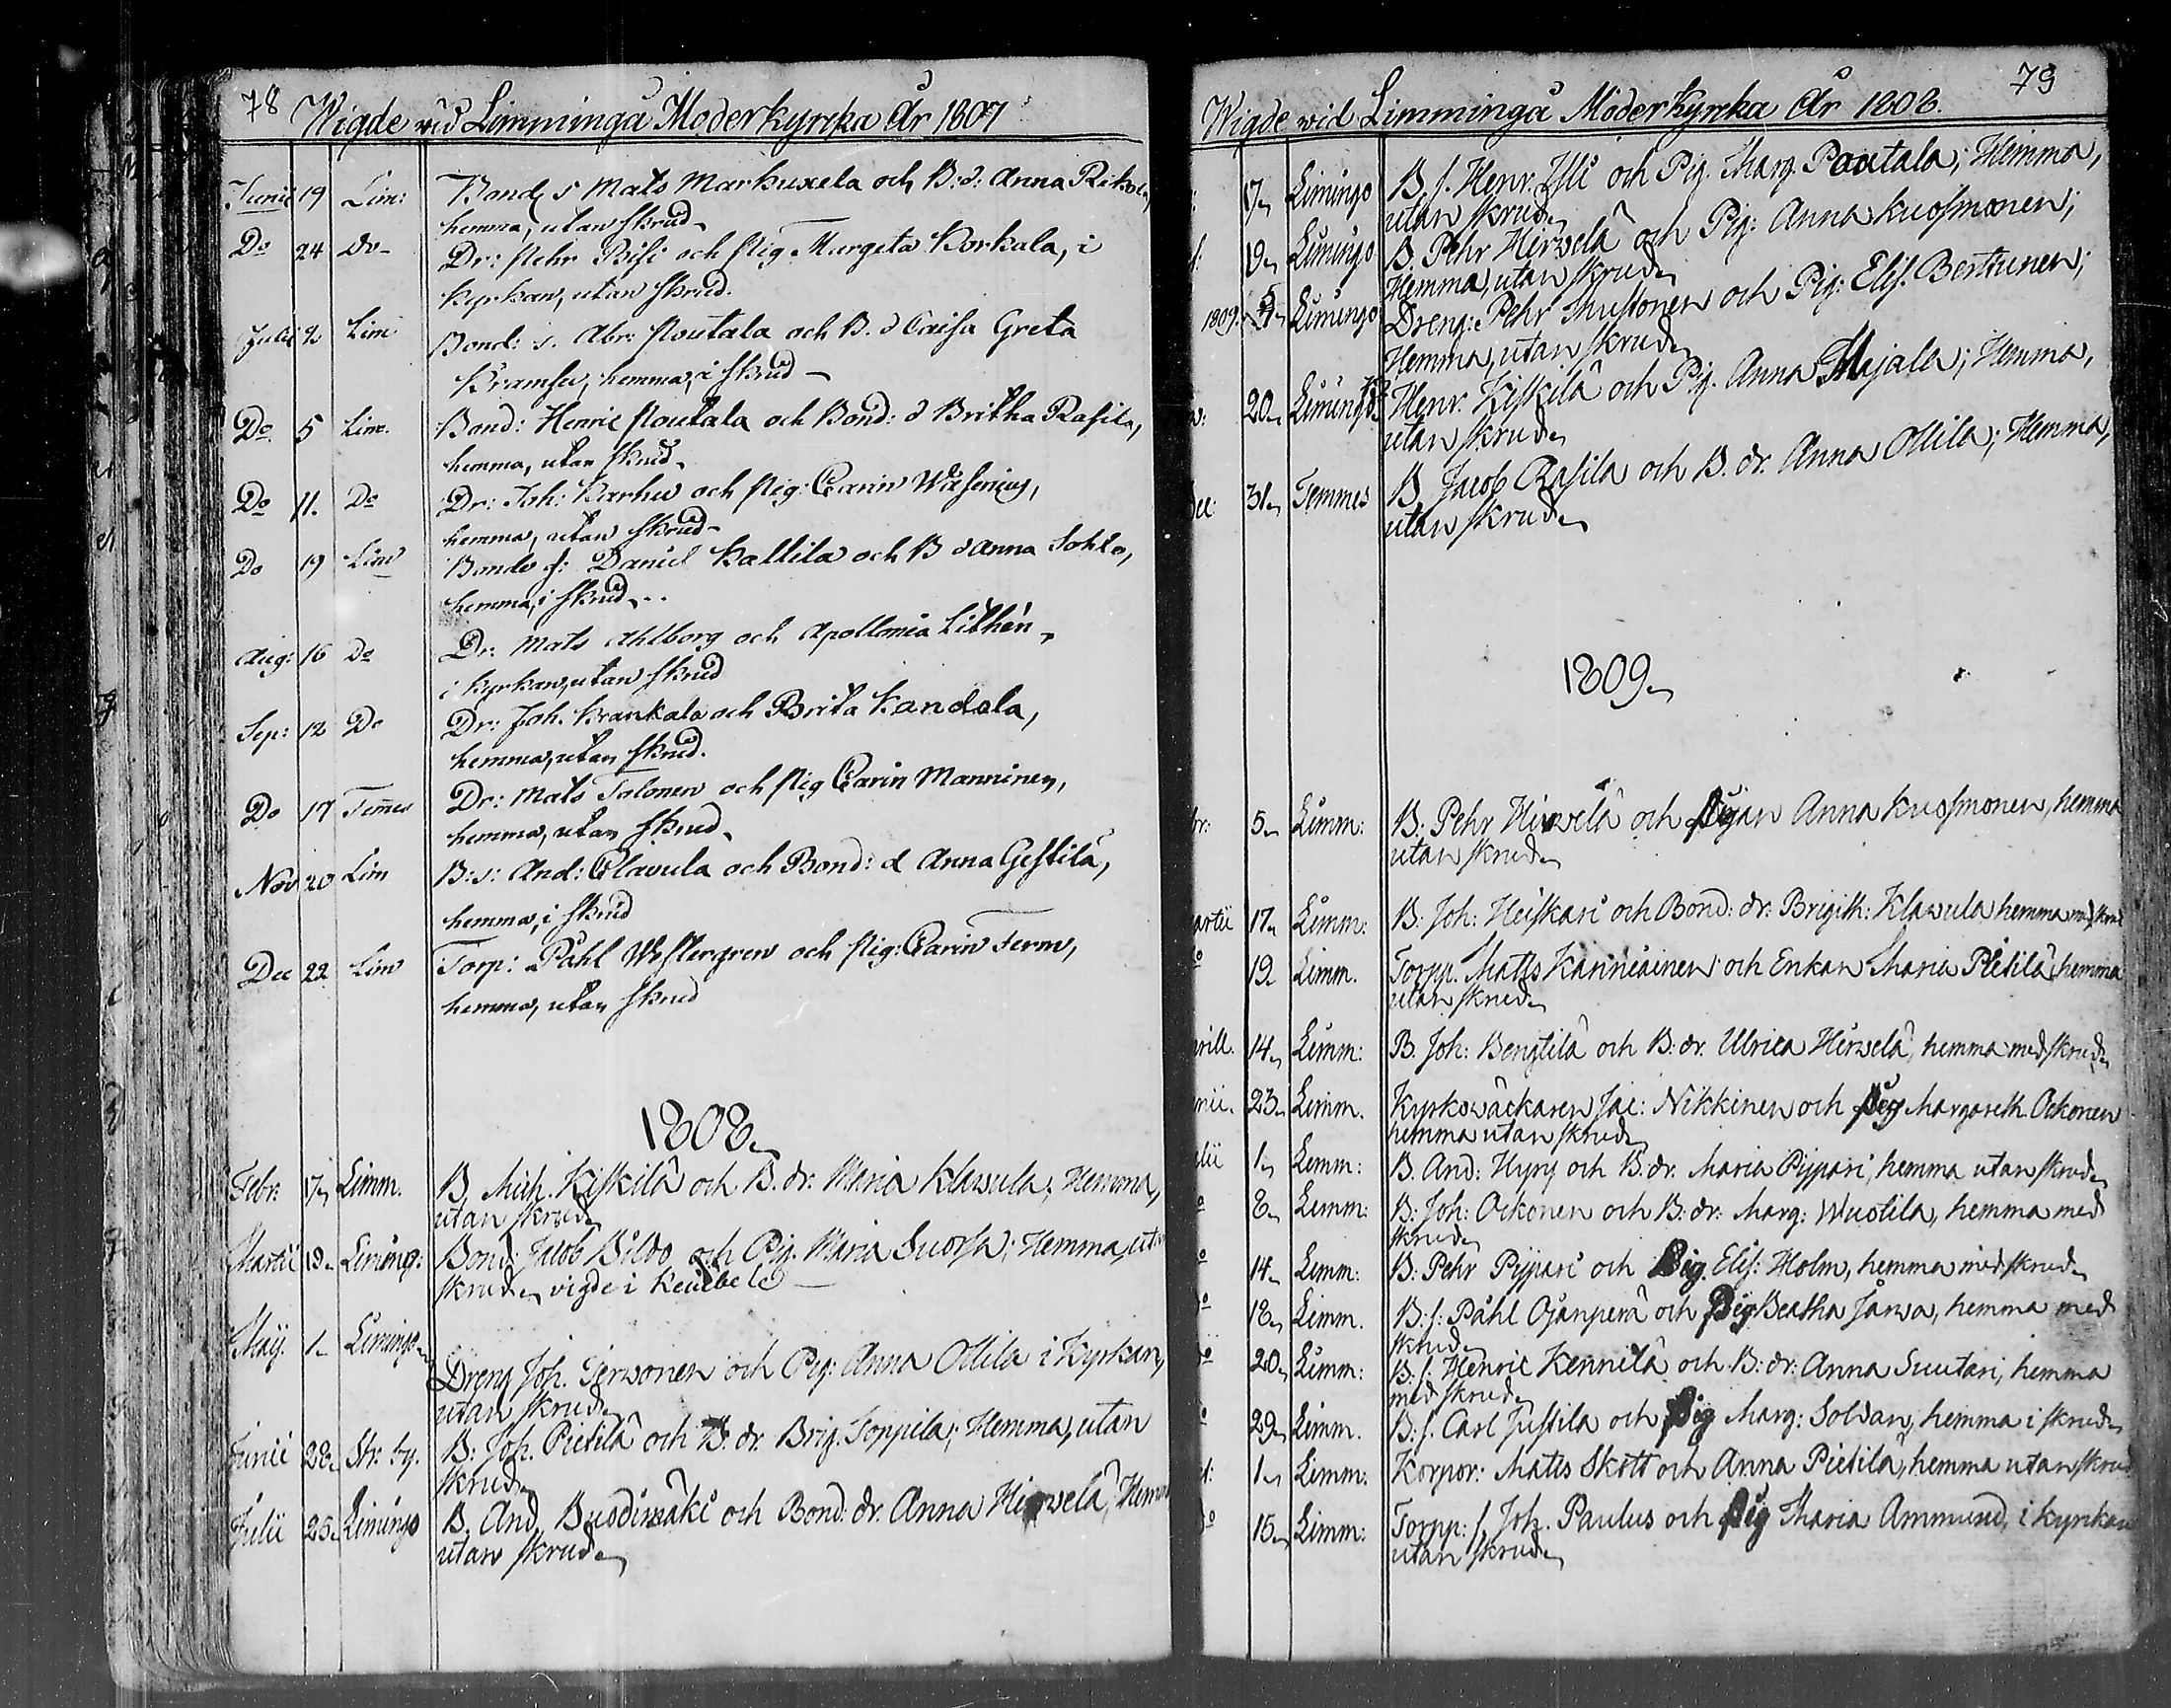 78 Wigde wid Limminga Moderkyrka År 1807
Junii 19 Lim: Bond s Mats Markuxela och B: d: Anna
hemma, utan skrud
Do 24 do Dr: Pehr Pisi och Pig Margeta Korkala, i
kyrkan, utan skrud.
Julii 2 Lim Bond: s. Abr: Poutala och B. d Caisa Greta
Kramsu, hemma, i skrud
Do 5 Lim. Bond: Henric Poutala och Bond: d Britha Rasila,
hemma, utan skrud.
Do 11. Do Dr: Joh: Karhu och Pig: Carin
hemma, utan skrud
Do 19 Lim Bonde s: Daniel Kallila och B d Anna Sohlo,
hemma, i skrud
Aug: 16 Do Dr: Mats Ahlborg och Apollonia Lithén
i kyrkan, utan skrud
Sep: 12 Do Dr: Joh. Krankala och Brita Kandola,
hemma, utan skrud.
Do 17 Temes Dr: Mats Tolonen och Pig Carin Manninen,
hemma, utan skrud
Nov 20 Lim B: s: And: Clavula och Bond: d Anna Gestilä,
hemma, i skrud
Dec 22 Lim Torp: Påhl Westergren och Pig: Carin Ferm,
hemma, utan skrud
1808
Febr: 17 Limm. B. Mich. Kiskilä och B. dr. Maria Klawula; Hemma,
utan skrud
Martii 19 Liming: Bond: Jacob Bildo och Pig. Maria Suorsa; Hemma, utan
skrud, vigde i Kembele
Maij. 1 Limingo Dreng Joh. Jerwonen och Pig: Anna Ollila i Kyrkan,
utan skrud
Junii 28 Str. by. B: Joh. Pietilä och B. dr. Brig. Toppila; Hemma, utan
skrud
Julii 25 Limingo B. And. Buodimäki och Bond: dr. Anna Hirwelä, Hemma
utan skrud
Wigde wid Limmingå Moderkyrka År 1808. 79
17 Limingo B. s. Henr. Ylli och Pig. Marg. Poutala; Hemma,
utan skrud
19 Limingo B. Pehr Hirwelä och Pig: Anna Kuosmonen;
Hemma, utan skrud
1809. 5 Limingo Dreng: Pehr Mustonen och Pig: Elis. Bertunen;
Hemma, utan skrud
20 Limingo B. Henr. Kiskilä och Pig. Anna Majala; Hemma,
utan skrud
Dec: 31 Temmes B. Jacob Rasila och B. dr. Anna Ollila; Hemma,
utan skrud
1809
br: 5 Limm: B: Pehr Hirwelä och Pigan Anna Kuosmonen, hemma
utan skrud
artii 17 Limm: B: Joh: Heiskari och Bond: dr: Brigith: Klawula hemma med skrud
o 19 Limm. Torpp. Matts Karinkainen och Enkan Maria Pietilä, hemma
utan skrud
rill. 14 Limm: B. Joh: Bengtilä och B: dr. Ulrica Hirwelä, hemma med skrud
nii. 23 Limm. Kyrkowäckaren Jac: Nikkinen och Pig Margareth Ockonen
hemma utan skrud
lii 1 Limm: B. And: Hyry och B: dr. Maria Pyypari, hemma utan skrud
o 8 Limm: B: Joh: Ockonen och B: dr: Marg: Wuotila, hemma med
skrud
o 14 Limm: B: Pehr Pyypari och Pig. Elis: Holm, hemma med skrud
o 18 Limm. B: s: Påhl Ojanperä och Pig Beatha Jårwa, hemma med
skrud
o 20 Limm: B: s. Henric Kennilä och B: dr: Anna Suutari, hemma
med skrud
o 29 Limm. B: s. Carl Justila och Pig Marg: Soldan, hemma i skrud
t: 1 Limm: Korpor: Matts Skott och Anna Pietilä, hemma utan skrud
o 15 Limm: Torpp: s. Joh. Paulus och Pig Maria Ammund, i kyrkan
utan skrud